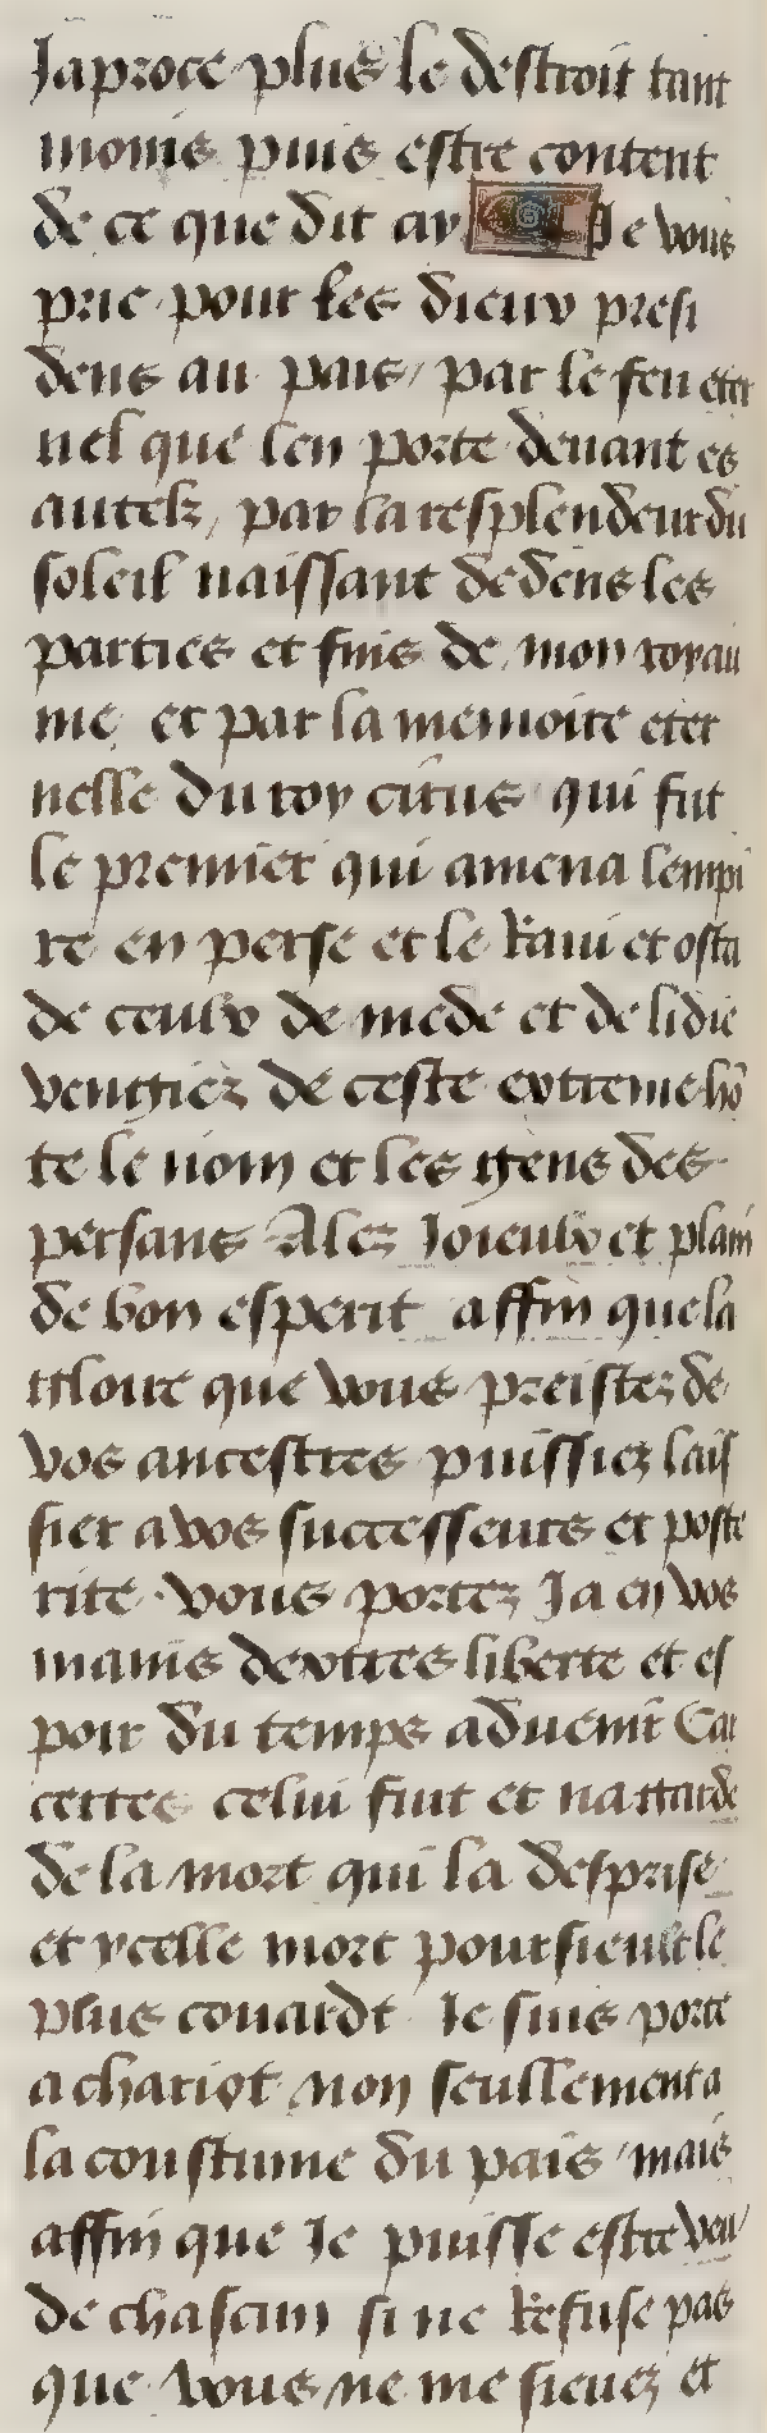 Japroce plus le destroit tant
moins puis estre content
de ce que dit ay Je vous
prie pour les dieux presi
dens au pais, par le feu eter
nel que len porte deuant es
autelz, par la resplendeur du
soleil naissant dedens les
parties et fins de mon royau
me, et par la memoire eter
nelle du roy cirus qui fut
le premier qui amena lempi
re en perse et le raui et osta
de ceulx de mede et de lidie
vengiez de ceste extreme hõ
te le nom et les gens des
persans Alez Joieulx et plain
de bon esperit affin que la
gloire que vous preistez de
vos ancestres puissiez lais
sier a vos successeurs et poste
rite. vous portez Ja en vos
mains dextres liberte et es
poir du temps aduenir Car
certes celui fuit et na garde
de la mort qui la desprise
et ycelle mort poursieult le
plus couardt Je suis porte
a chariot non seullement a
la coustume du pais mais
affin que Je puisse estre veu
de chascun si ne refuse pas
que vous ne me sieuez et